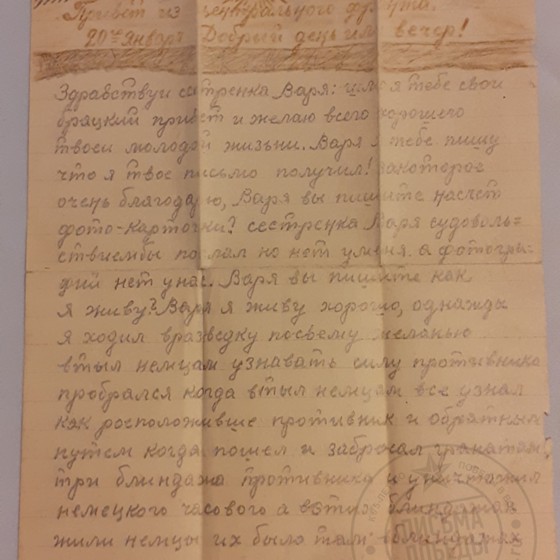 Привет из центрального фронта.
20го Января Добрый день или вечер!
Здравствуй сестренка Варя: шлю я тебе свой
брацкий привет и желаю всего хорошего
твоей молодой жызни. Варя я тебе пишу
что я твое письмо получил! закоторое
очень благодарю, Варя вы пишите насчет
фото-карточки? сестренка Варя судоволь=
ствиембы послал но нет уменя. а фотогра=
фий нет унас. Варя вы пишите как
я живу? Варя я живу хорошо, однажды
я ходил вразведку посвоему желанью
втыл немцам узнавать силу противника
пробрался когда втыл немцам, все узнал
как росположившые противник и обратным
путем когда пошел и забросал гранатами
три блиндажа противника и уничтожил
немецкого часового а вэтих блиндажах
жили немцы их было там вблиндажах
ПИСЬМА
ПОБЕДЫ